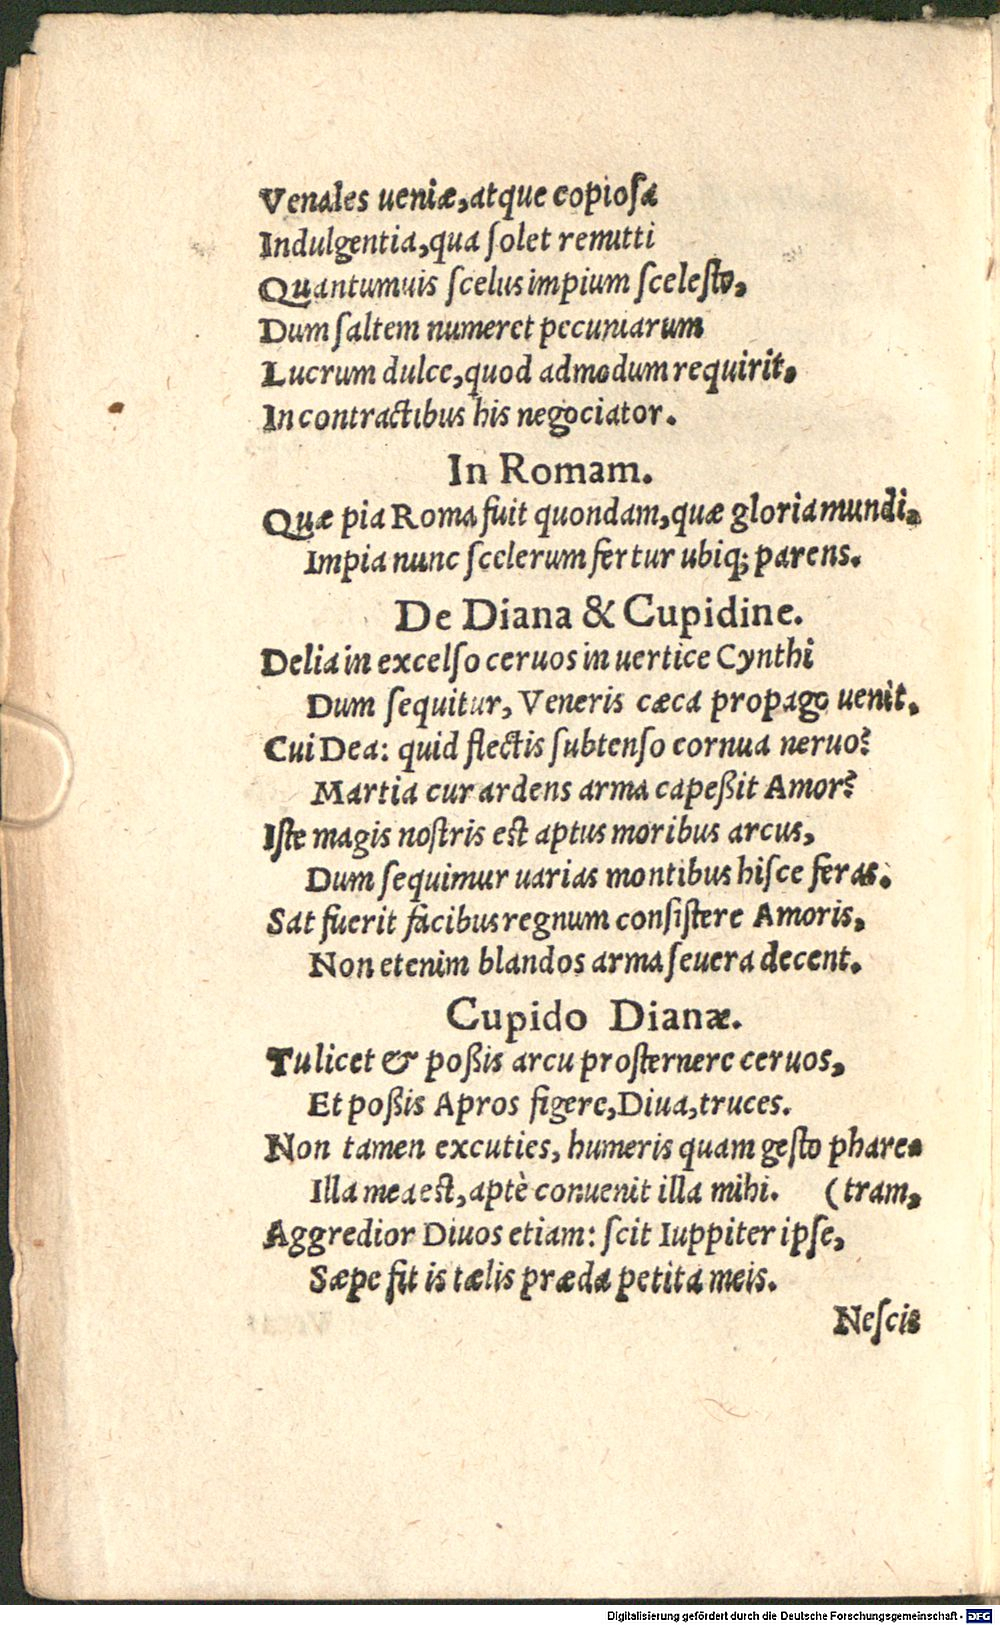 Venales ueniæ, atque copiosa
Indulgentia, qua ſolet remitti
Quantumuis ſcelus impium ſceleſto,
Dum ſaltem numeret pecuniarum
Lucrum dulce, quod admodum requirit,
In contractibus his negociator.
In Romam.
Quæ pia Roma fuit quondam, quæ gloria mundi,
Impia nunc ſcelerum fertur ubiq; parens.
De Diana & Cupidine.
Delia in excelſo ceruos in uertice Cynthi
Dum ſequitur, Veneris cæca propago uenit.
Cui Dea: quid flectis ſubtenſo cornua neruo?
Martia cur ardens arma capeßit Amor?
Iſte magis noſtris eſt aptus moribus arcus,
Dum ſequimur uarias montibus hiſce feras.
Sat fuerit facibus regnum conſiſtere Amoris,
Non etenim blandos arma ſeuera decent.
Cupido Dianæ.
Tu licet & poßis arcu proſternere ceruos,
Et poßis Apros figere, Diua, truces.
Non tamen excuties, humeris quam geſto phare-
Illa mea eſt, aptè conuenit illa mihi. (tram,
Aggredior Diuos etiam: ſcit Iuppiter ipſe,
Sæpe fit is tælis præda petita meis.
Neſcis
Digitalisierung gefördert durch die Deutsche Forschungsgemeinschaft - DFG